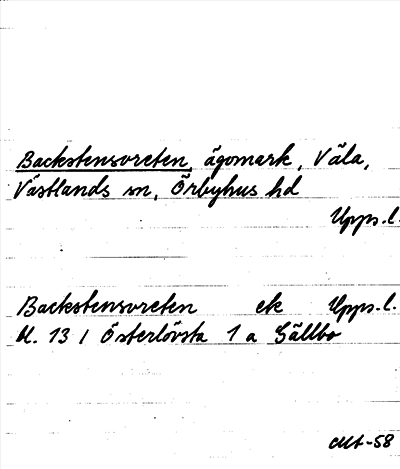 Backstensoreten, ägomark, Väla,
Västlands sn, Örbyhus hd
Upps. l.
Backstensoreten ek Upps. l.
U. 13 / Österlövsta 1 a Gällbo
-58